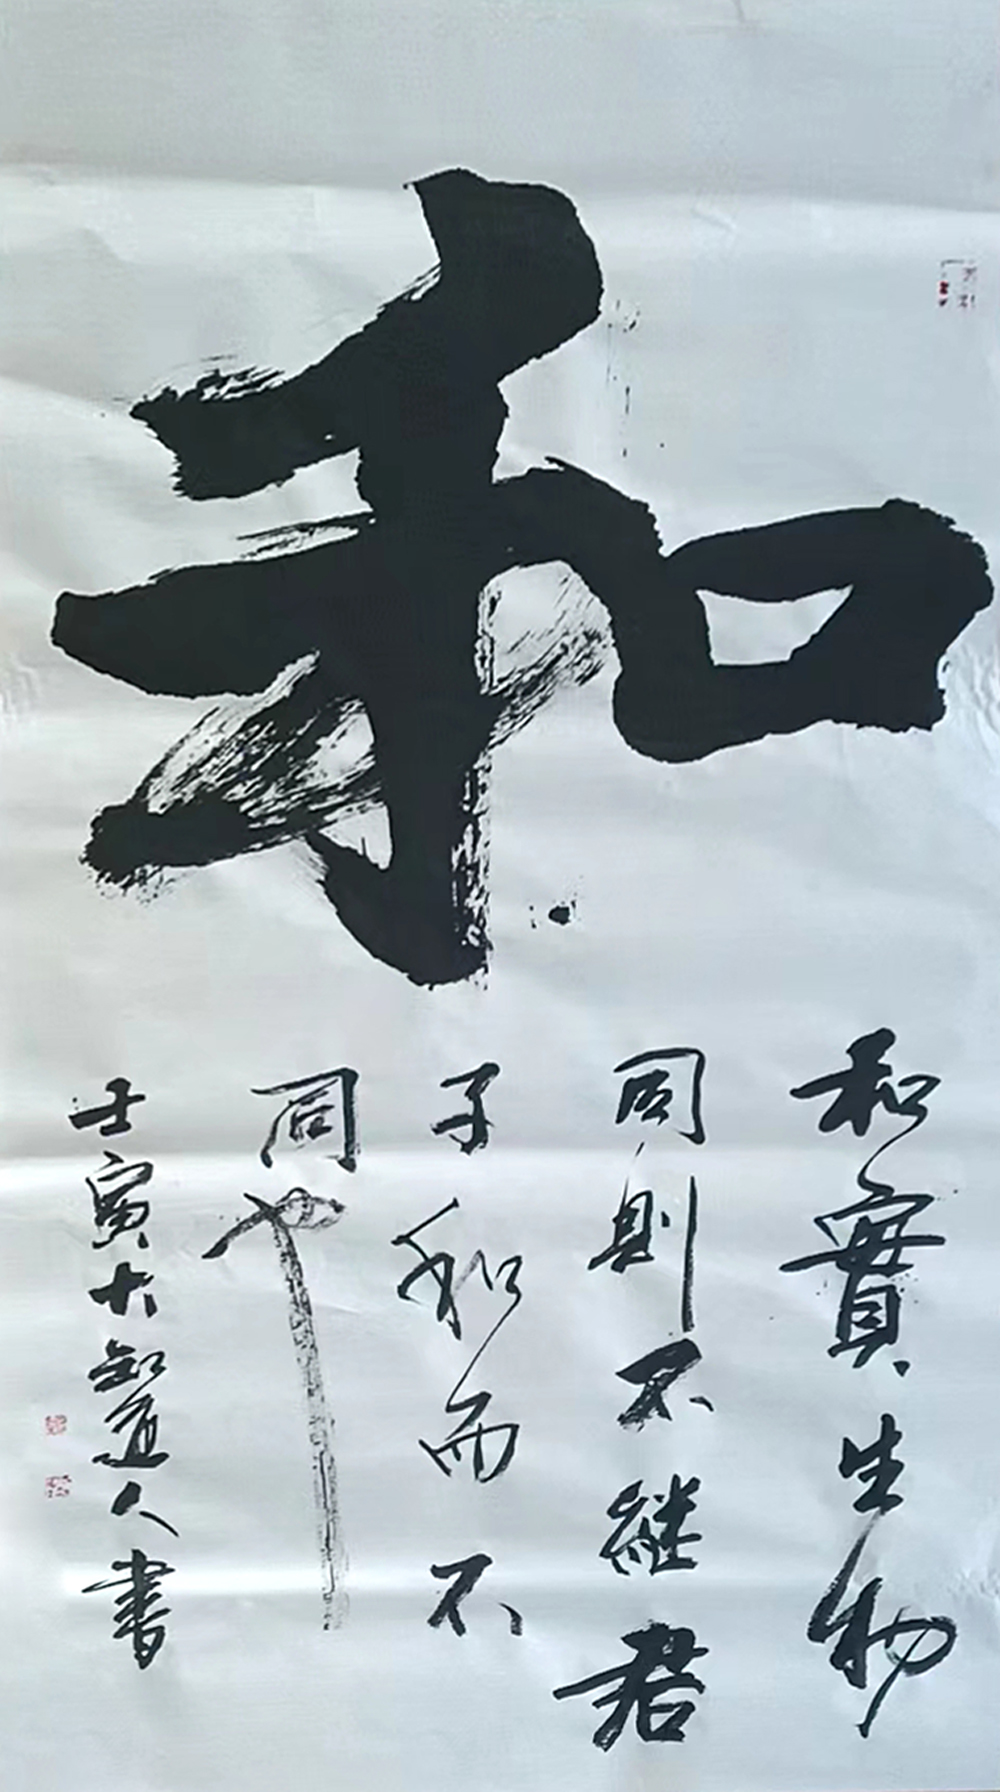 和
和實生物
同則不繼君
子和而不
同也
壬寅大知道人書